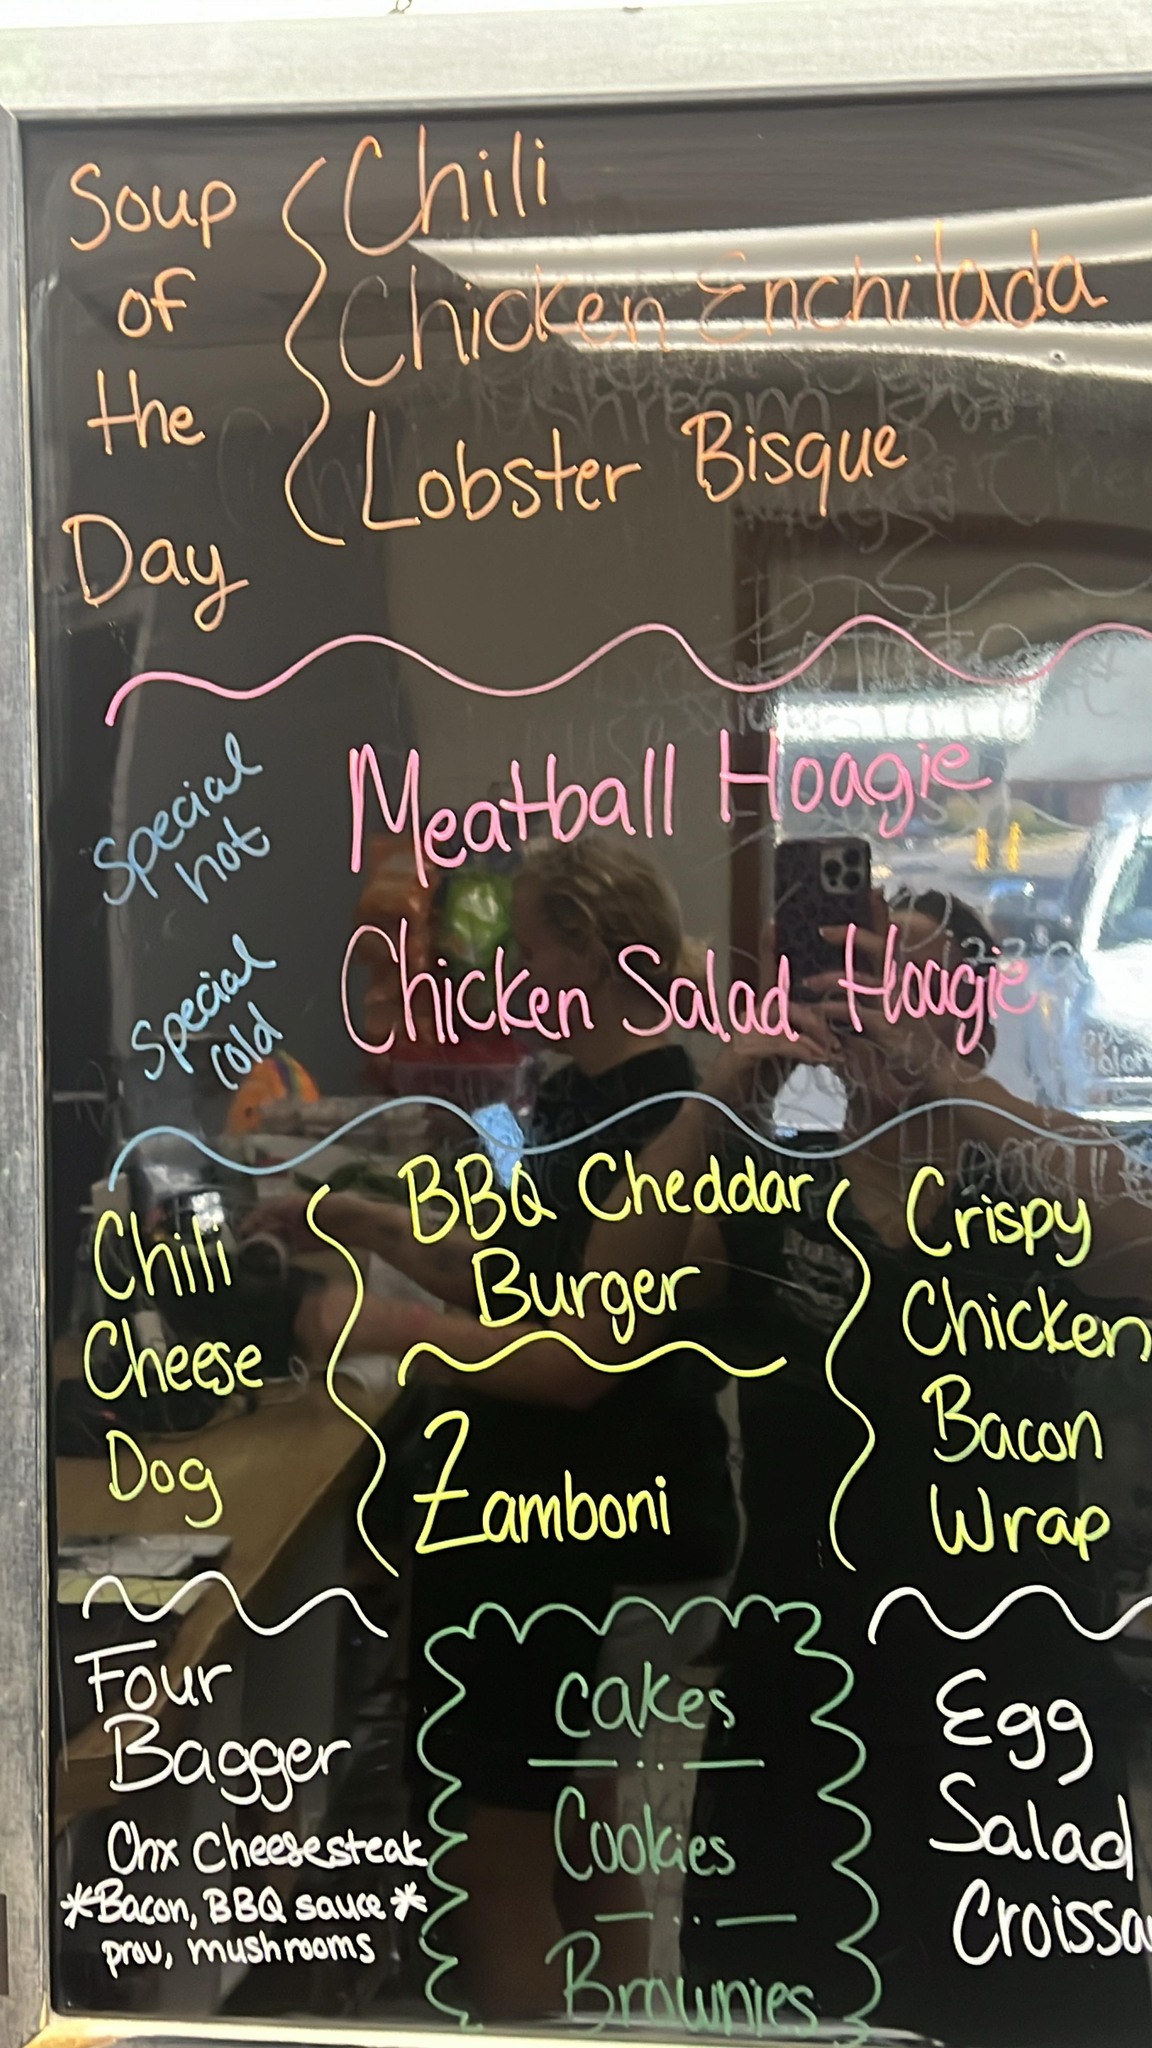 Soup
of
the
Day
Chili
Chicken Enchilada
Lobster Bisque
Special
hot
Meatball Hoagie
Special
cold
Chicken Salad Hoagie
Chili
Cheese
Dog
BBQ Cheddar
Burger
Zamboni
Crispy
Chicken
Bacon
Wrap
Four
Bagger
Chx Cheesesteak
*Bacon, BBQ sauce*
prov, mushrooms
cakes
Cookies
Brownies
Egg
Salad
Croissa